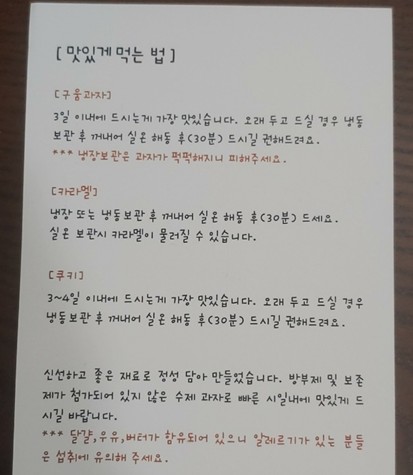 [ 맛있게 먹는 법 ]
[구움과자]
3일 이내에 드시는게 가장 맛있습니다. 오래 두고 드실 경우 냉동
보관 후 꺼내어 실온 해동 후(30분) 드시길 권해드려요.
*** 냉장보관은 과자가 떡떡해지니 피해주세요.
[카라멜]
냉장 또는 냉동보관 후 꺼내어 실온 해동 후(30분) 드세요.
실온 보관시 카라멜이 물러질 수 있습니다.
[쿠키]
3~4일 이내에 드시는게 가장 맛있습니다. 오래 두고 드실 경우
냉동보관 후 꺼내어 실온 해동 후(30분) 드시길 권해드려요.
신선하고 좋은 재료로 정성 담아 만들었습니다. 방부제 및 보존
제가 첨가되어 있지 않은 수제 과자로 빠른 시일내에 맛있게 드
시길 바랍니다.
*** 달걀,우유,버터가 함유되어 있으니 알레르기가 있는 분들
은 섭취에 유의해 주세요.